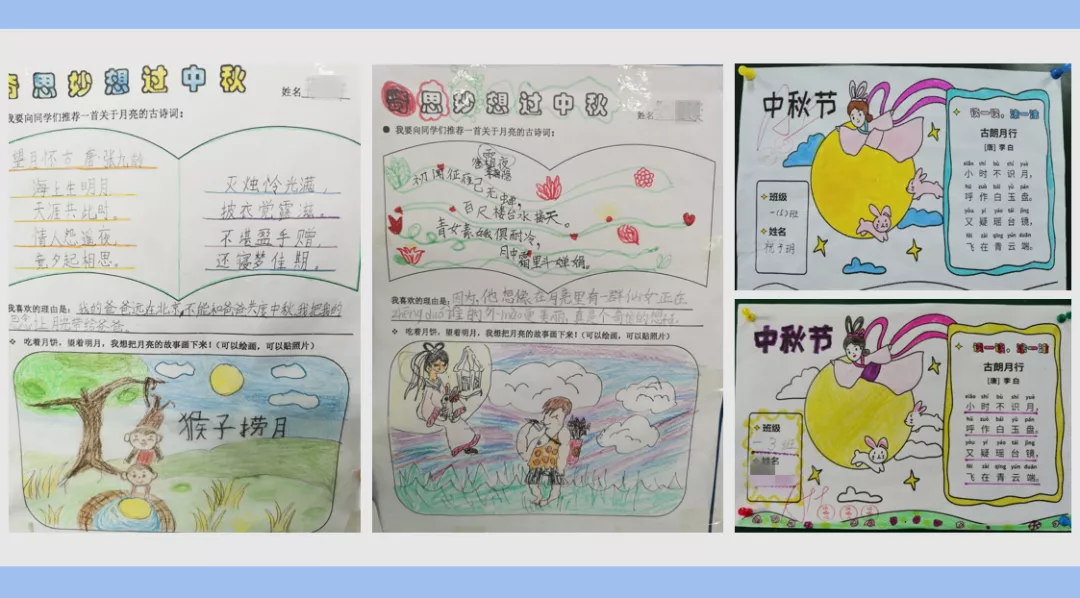 奇思妙想过中秋
姓名
我要向同学们推荐一首关于月亮的古诗词:
望月怀古 唐·张九龄
海上生明月
天涯共此时。
情人怨遥夜,
竟夕起相思。
灭烛怜光满,
披衣觉露滋。
不堪盈手赠,
还寝梦佳期。
我喜欢的理由是:我的爸爸远在北京,不能和爸爸共度中秋,我把我的
思念让月亮带给爸爸。
❖ 吃着月饼,望着明月,我想把月亮的故事画下来!(可以绘画,可以贴照片)
猴子捞月
奇思妙想过中秋
姓名
● 我要向同学们推荐一首关于月亮的古诗词:
初闻征雁已无蝉,
百尺楼台水接天。
青女素娥俱耐冷,
月中霜里斗婵娟。
我喜欢的理由是:因为,他想像在月亮里有一群仙女正在
谁的更美丽,真是个奇怪的想法.
❖ 吃着月饼,望着明月,我想把月亮的故事画下来!(可以绘画,可以贴照片)
中秋节
班级
姓名
读一读,涂一涂
古朗月行
[唐] 李 白
xiǎo shí bù shí yuè
小时不识月,
hū zuò bái yù pán
呼作白玉盘。
yòu yí yáo tái jìng
又疑瑶台镜,
fēi zài qīng yún duān
飞在青云端。
中秋节
班级
一3班
姓名
读一读,涂一涂
古朗月行
[唐] 李 白
xiǎo shí bù shí yuè
小时不识月,
hū zuò bái yù pán
呼作白玉盘。
yòu yí yáo tái jìng
又疑瑶台镜,
fēi zài qīng yún duān
飞在青云端。